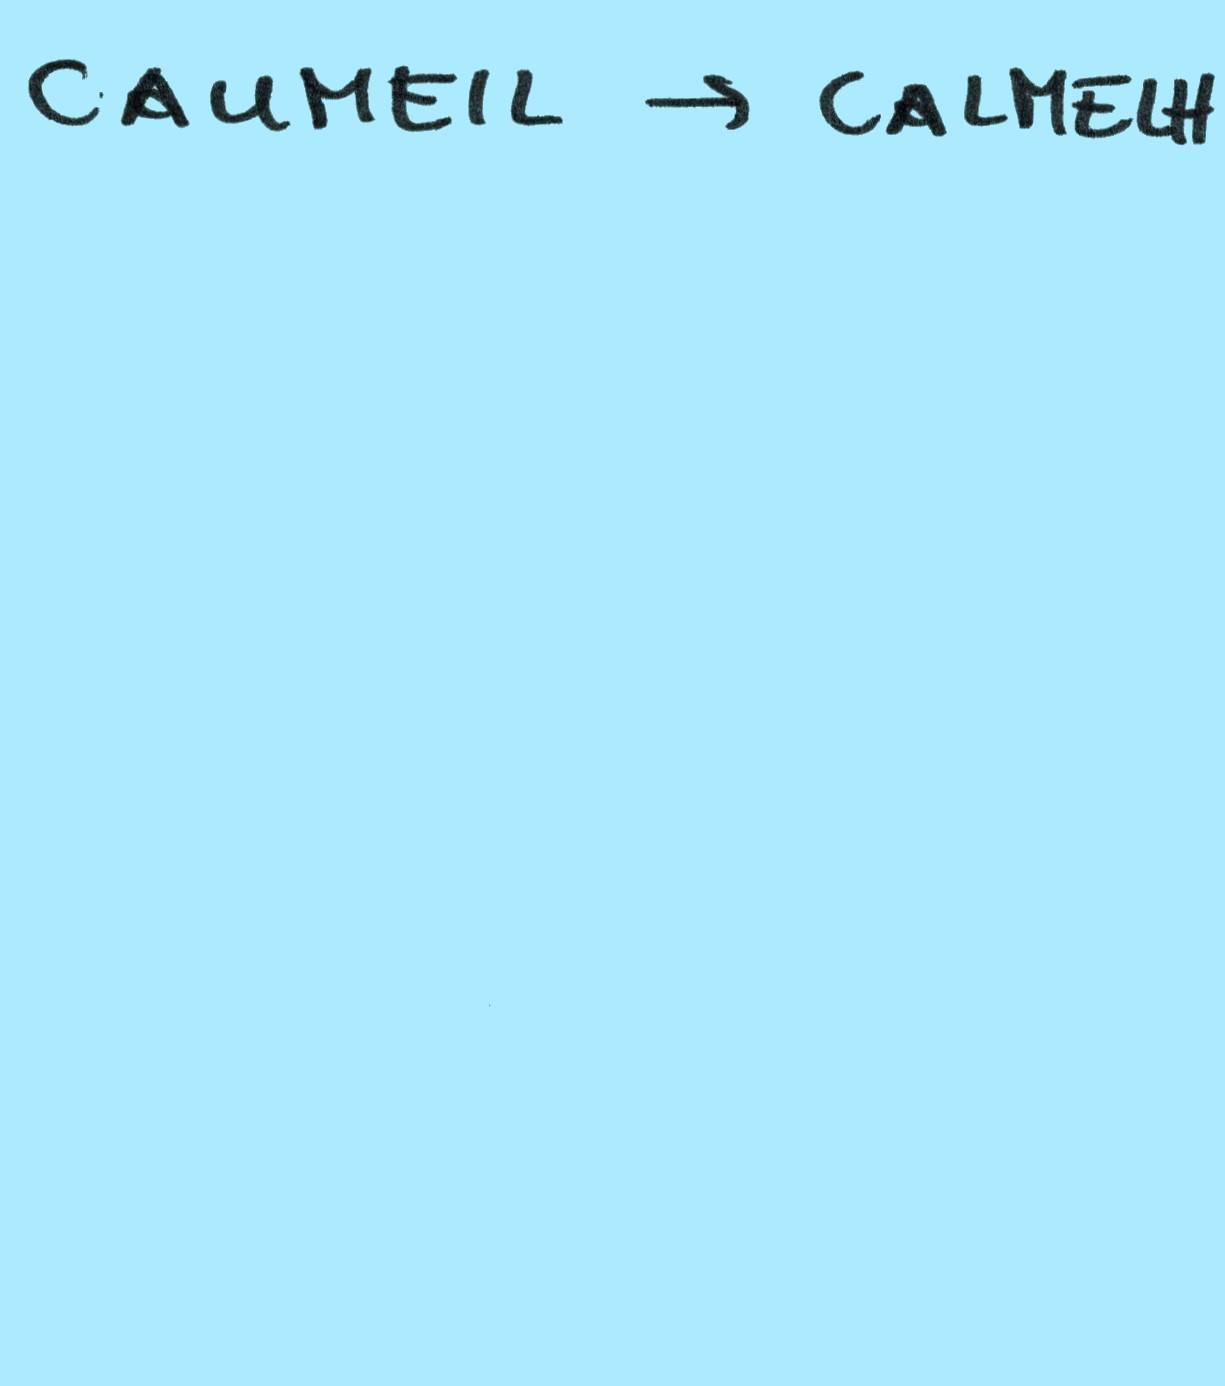 CAUMEIL → CALMELH